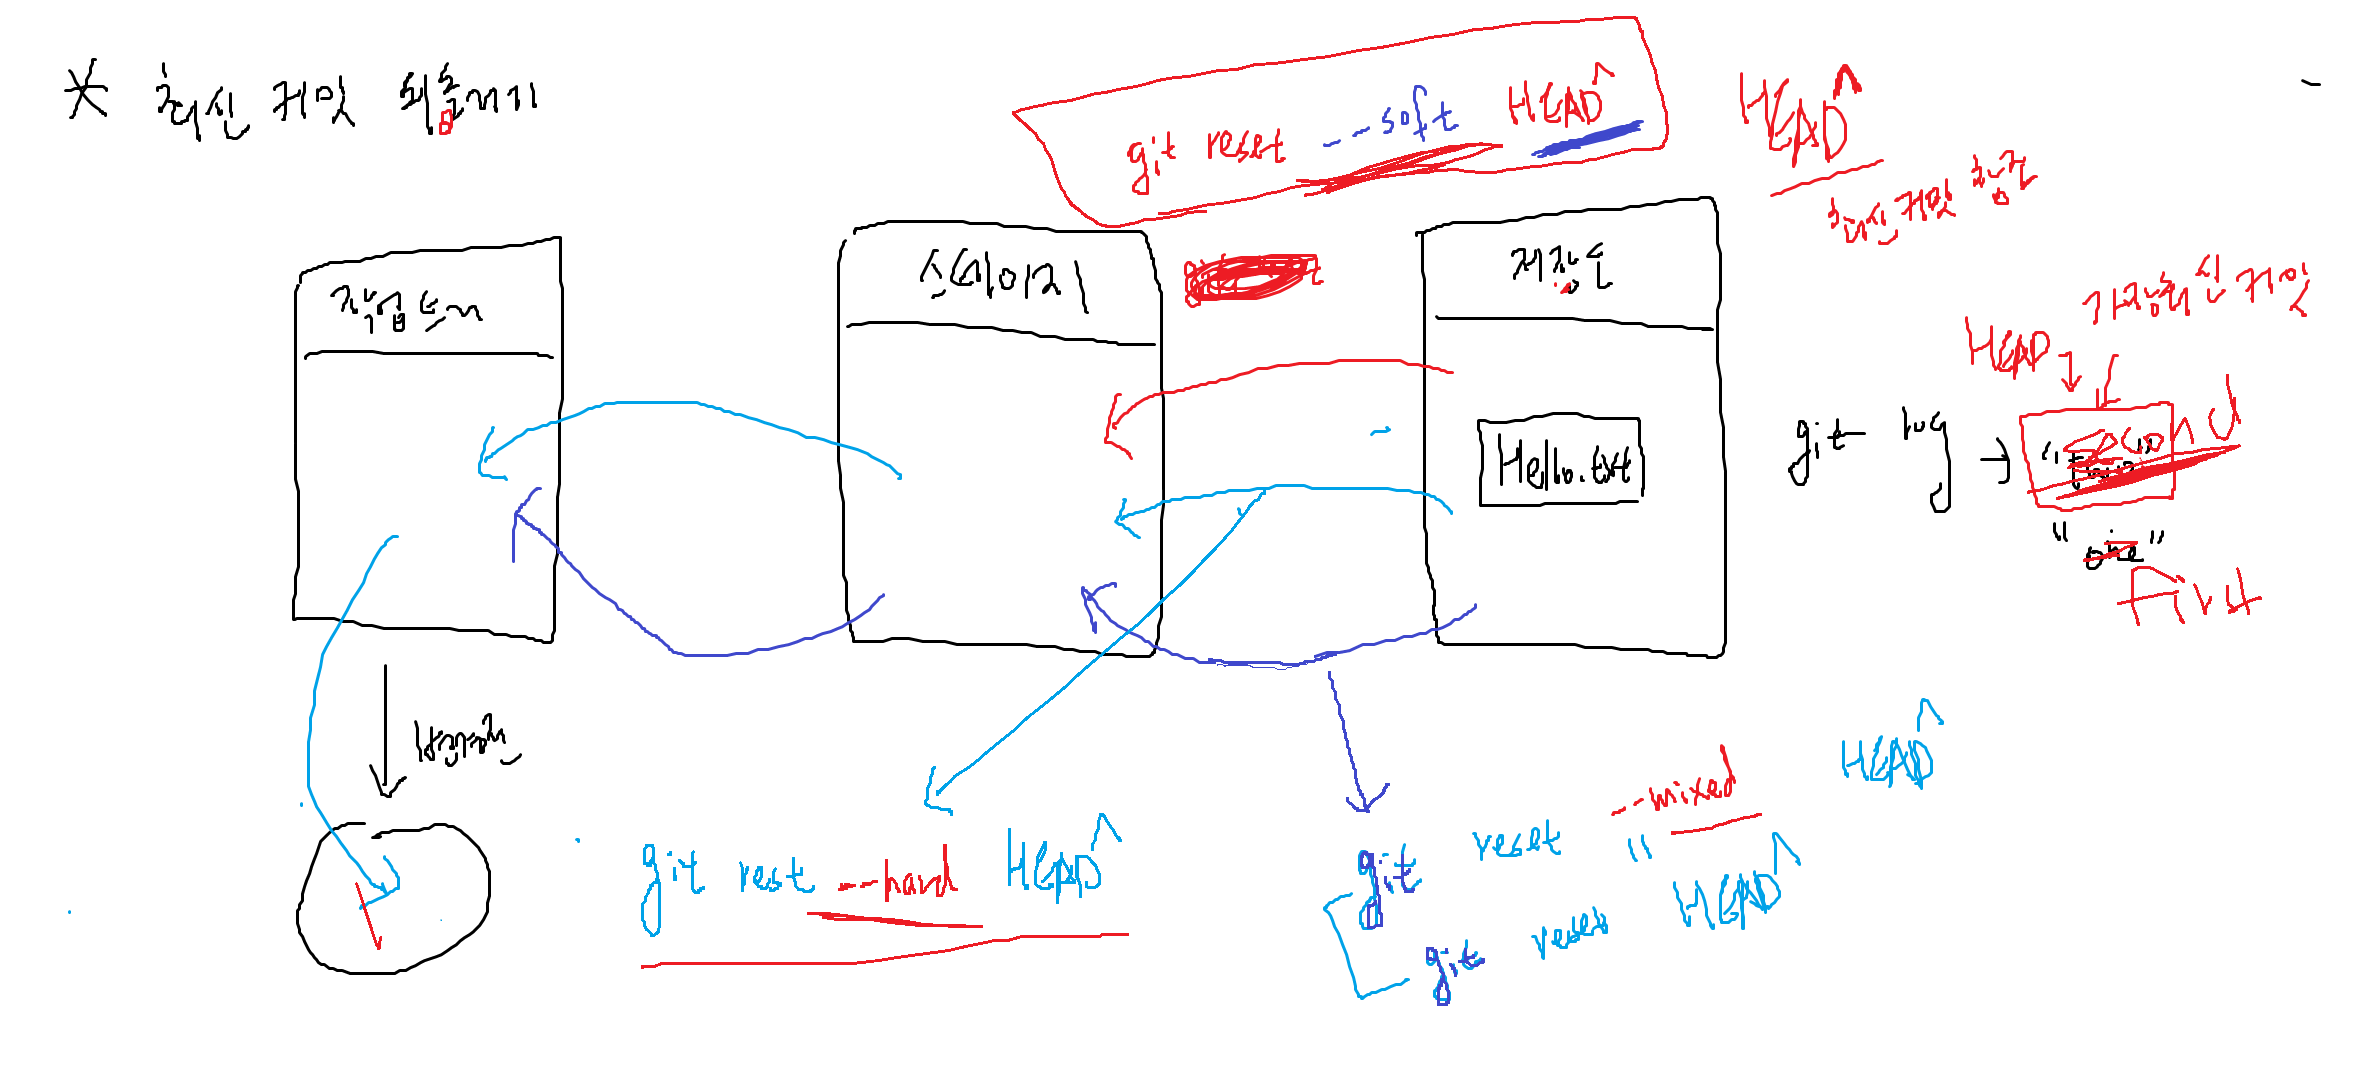 * 최신 커밋 되돌리기
git reset --soft HEAD^
HEAD^
최신 커밋 참조
작업트리
스테이지
저장소
가장 최신 커밋
HEAD
Hello.txt
git log
"second"
"one"
First
git rest --hard HEAD^
git reset --mixed HEAD^
git reset HEAD^